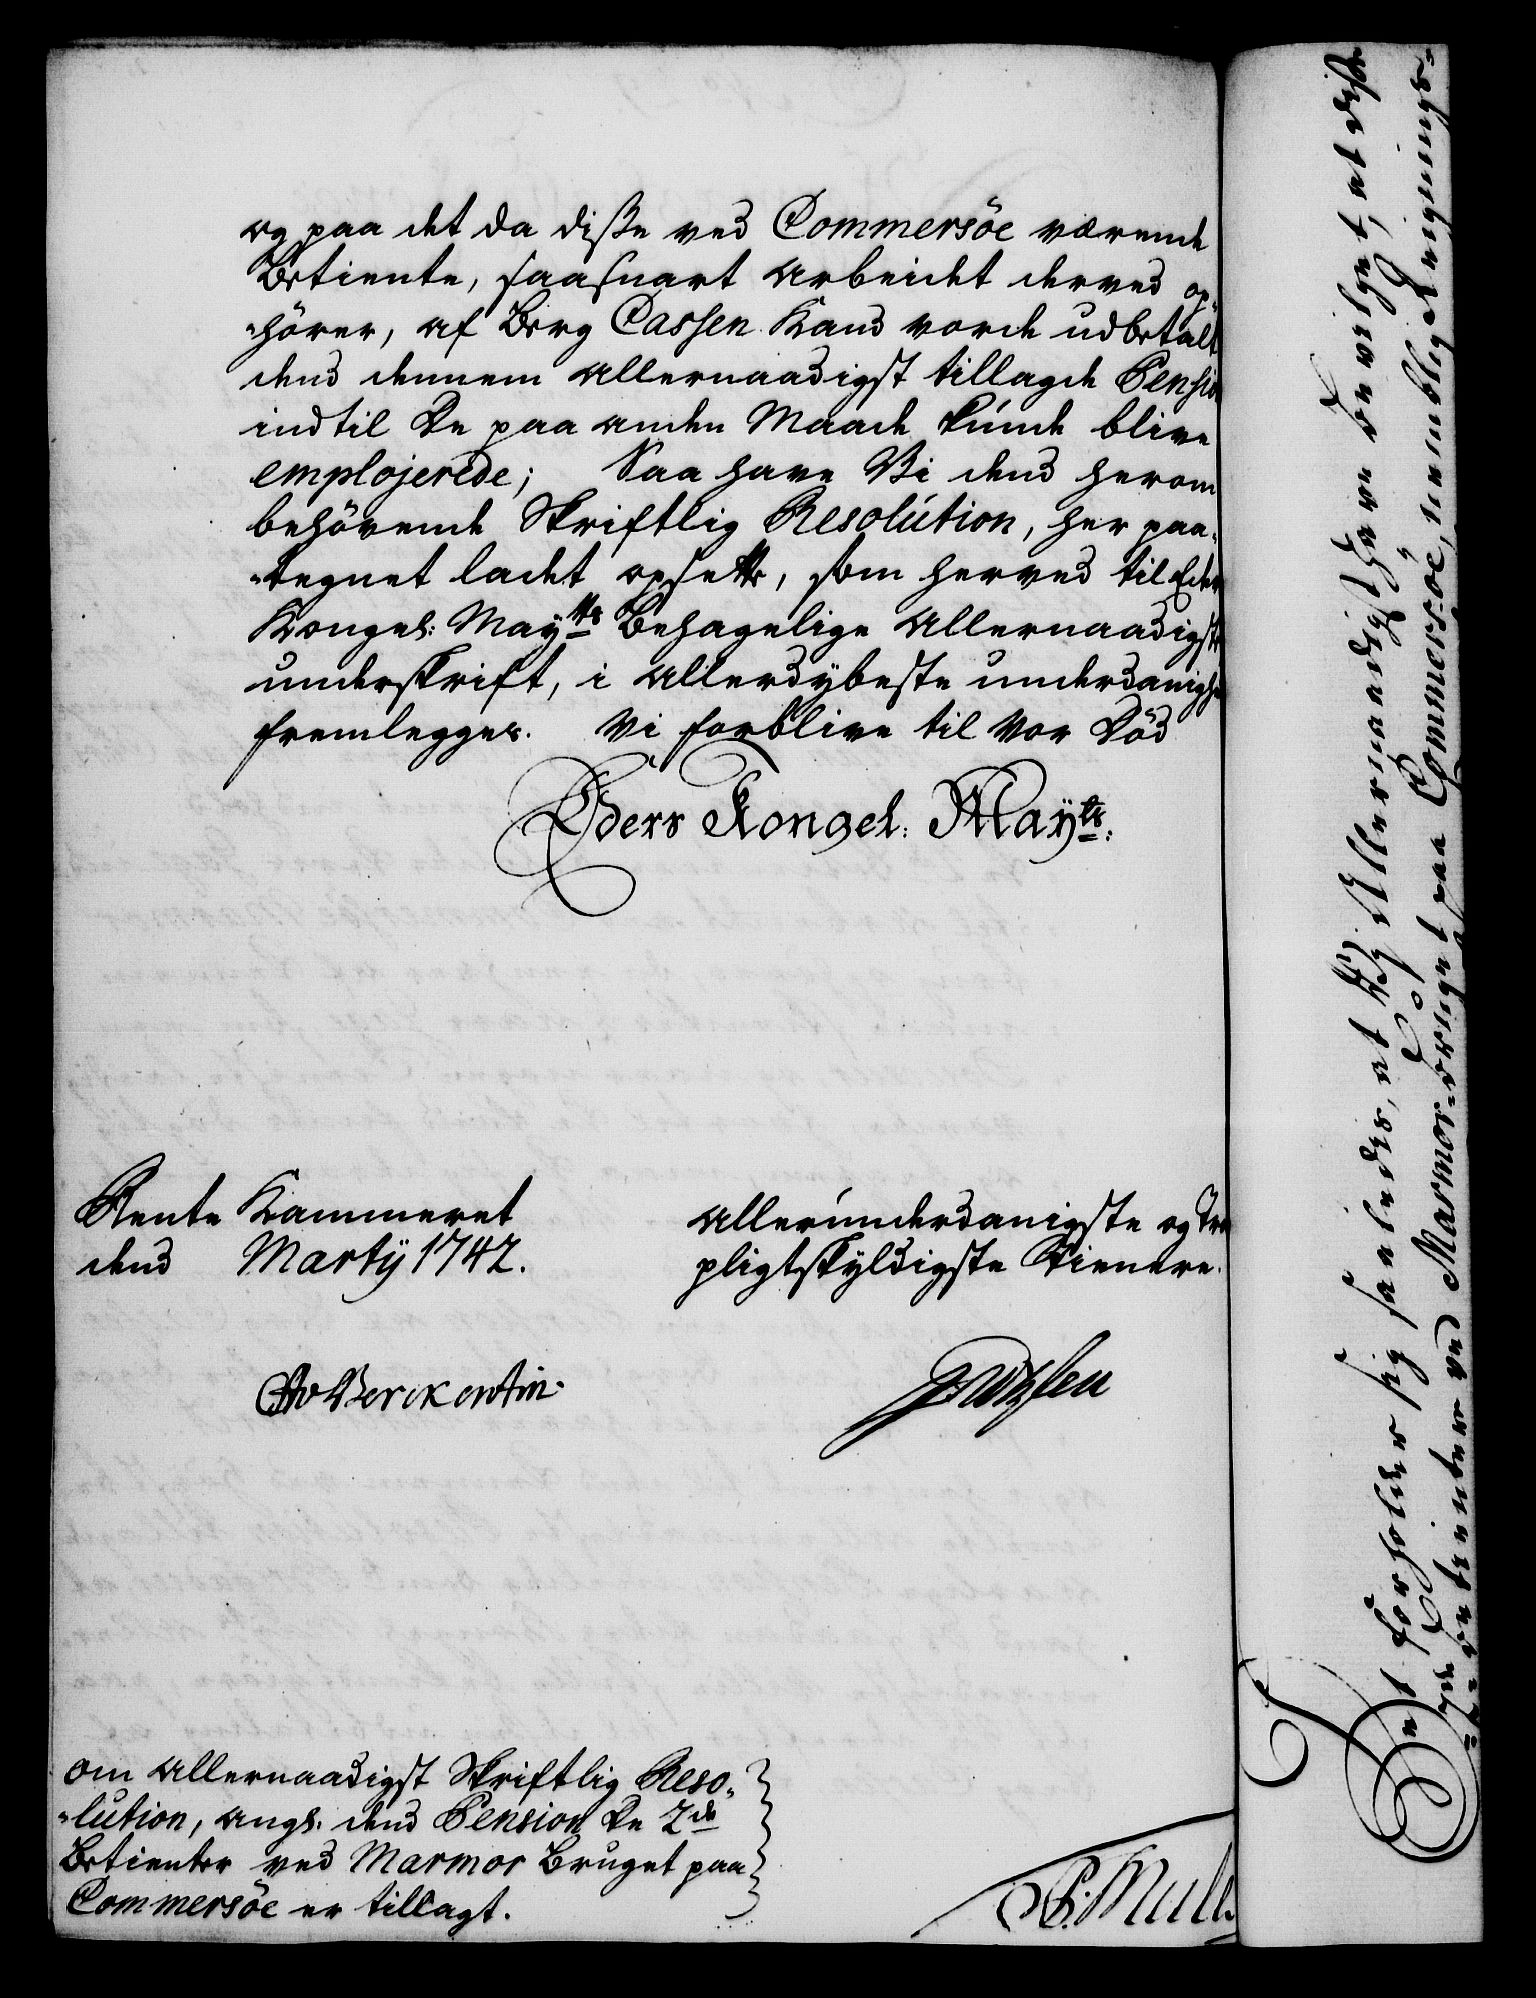 og paa det da diße ved Commersöe værende
Betiente, saasnart Arbeidet derved op„
„hörer, af Berg Cassen Kand vorde udbetalt
dend dennem allernaadigst tillagde Pensio
indtil De paa anden Maade kunde blive
employerede; Saa have Vi dend herom
behövende Skriftlig Resolution, her paa„
„tegnet ladet opsette, som herved til Eders
Kongel: Mayts Behagelige Allernaadigste
underskrift, i allerdybeste underdanighed
fremlegges. Vi forblive til vor Död
Eders Kongel: Mayts:
Rente Kammeret
dend Martÿ 1742.
allerunderdanigste og Troe
pligtskyldigste Tienere.
CAvBerckentin
om allernaadigst Skriftlig Reso„
„lution, ang: dend Pension De 2de
Betienter ved Marmor Bruget paa
Commersöe er tillagt.
Mull
Det forholder sig saaledes, at Vi Allernaadigst have bevilget, at diße
2de Betientere ved Marmor-Bruget paa Commersöe, nemblig Reignings-